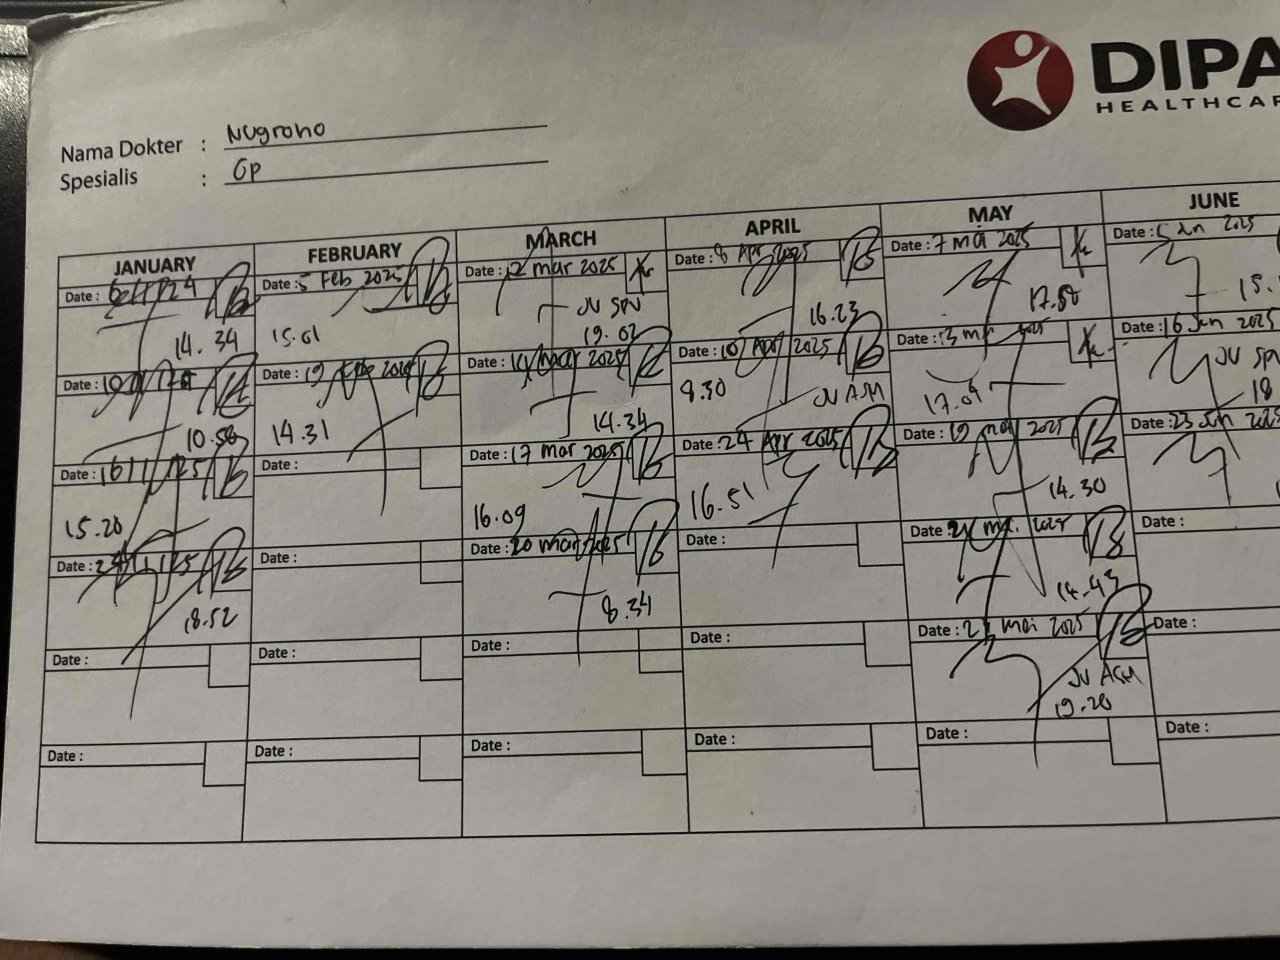 DIPA
HEALTHCAR
Nama Dokter : Nugroho
Spesialis : Gp
JANUARY FEBRUARY MARCH APRIL MAY JUNE
Date : Date : 5 Feb 2025 Date : 12 mar 2025 Date : 8 Apr 2025 Date : 7 mai 2025 Date : Jun 2025
14.34 15.01 JV SPV 19.02 16.23 17.50 15.
Date : Date : 19 Date : 2025 Date : 10 Apr 2025 Date : 13 Date : 16 Jun 2025
10.56 14.31 14.34 8.30 JV ASM 17.09 JV SPV 18
Date : 16/1/25 Date : Date : 17 mar 2025 Date : 24 Apr 2025 Date : 19 mai 2025 Date : 23 Jun 2025
15.20 16.09 16.51 14.30
Date : Date : Date : 20 mar 2025 Date : Date : 2025 Date :
18.52 8.34 14.43
Date : Date : Date : Date : Date : mai 2025 Date :
JV ASM 19.20
Date : Date : Date : Date : Date : Date :